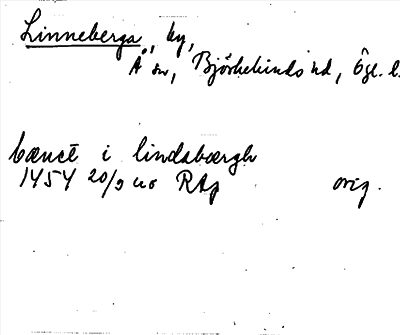 Linneberga, by,
Å sn, Björkekinds hd, Ögl. l.
bænct i lindabærgh
1454 20/9 RAp orig.